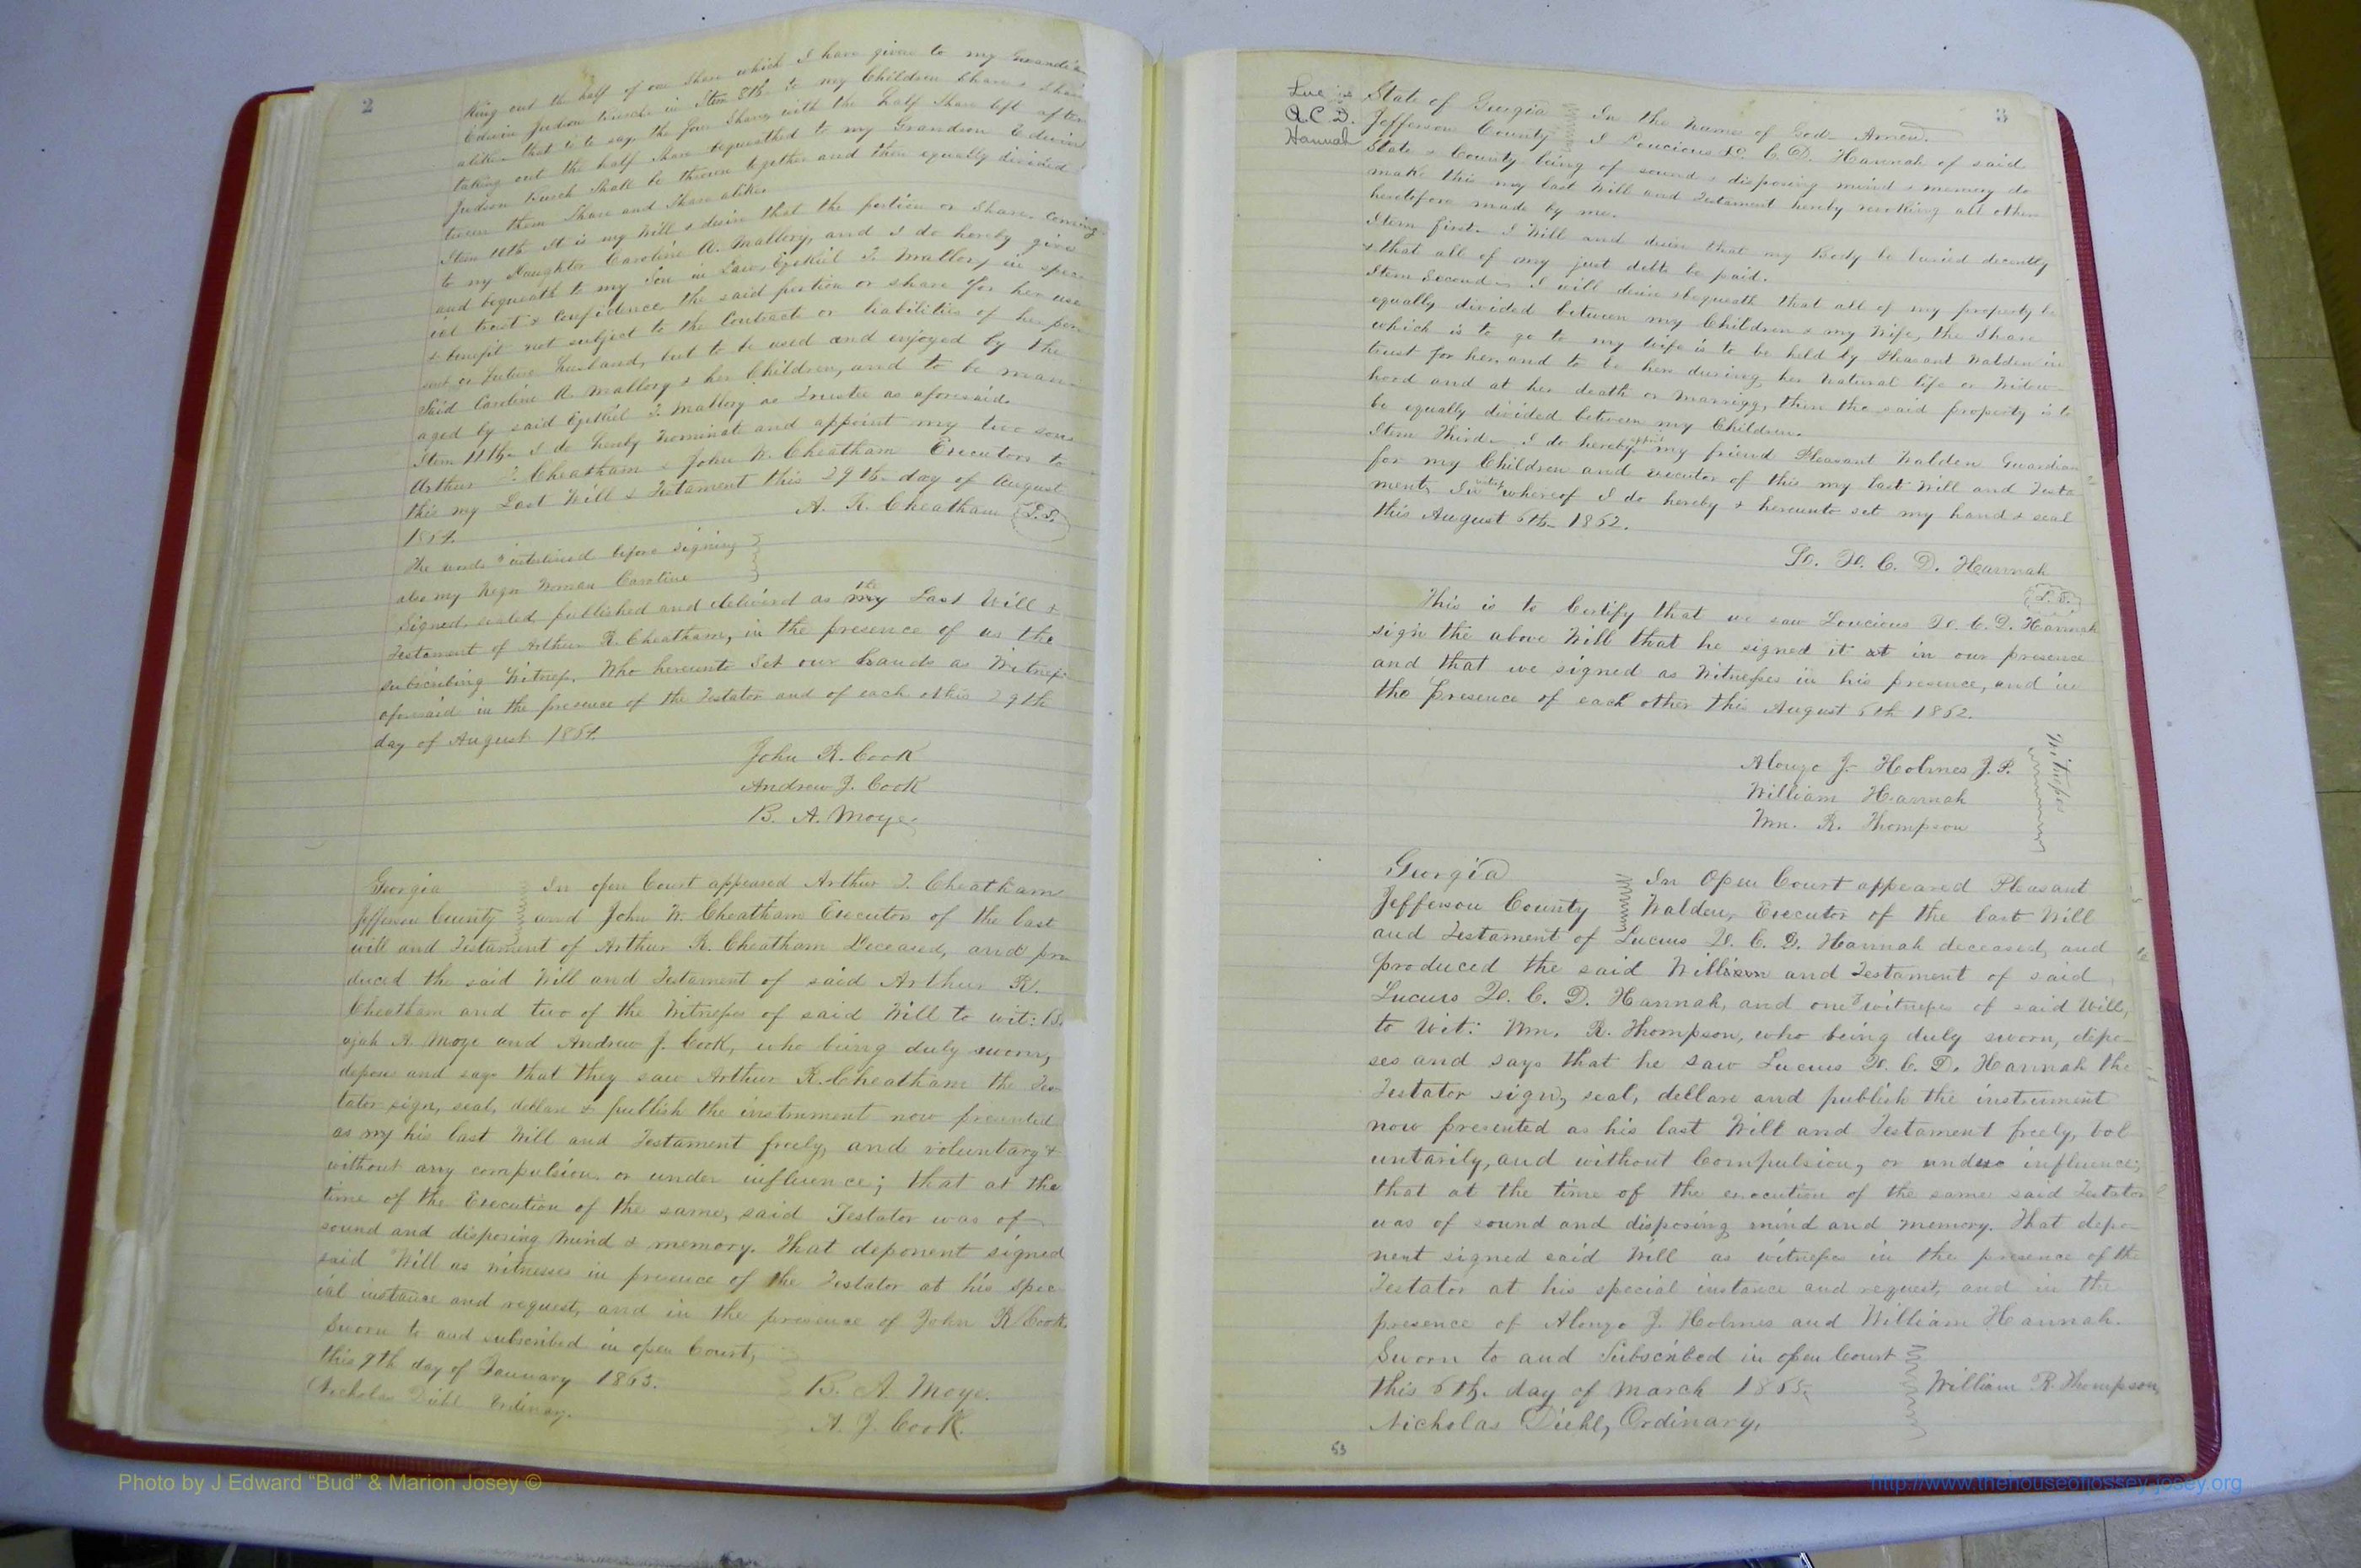 2
king out the half of one Share which I have given to my Grandson
Edwin Judson Burch in Item 8th to my Children Share & Share
alike that is to say, the four Shares with the half Share left after
taking out the half Share bequeathed to my Grandson Edwin
Judson Burch Shall be thrown together and then equally divided
tween them Share and Share alike.
Item 10th It is my Will & desire that the portion or Share coming
to my Daughter Caroline A. Mallory, and I do hereby give
and bequeath to my Son in Law, Ezekiel T. Mallory in spec
ial trust & Confidence the said portion or share for her use
& benefit not subject to the Contracts or liabilities of her pre
sent or future husband, but to be used and enjoyed by the
Said Caroline A. Mallory & her Children, and to be man
aged by said Ezekiel T. Mallory as Trustee as aforesaid.
Item 11th I do hereby Nominate and appoint my two sons
Arthur T. Cheatham & John W. Cheatham Executors to
this my Last Will & Testament this 29th day of August
A. R. Cheatham L.S.
The words interlined before signing
also my Negro Woman Caroline
Signed, sealed, published and delivered as my the Last Will &
Testament of Arthur R. Cheatham, in the presence of us the
subscribing Witness, Who hereunto Set our hands as Witness
aforesaid in the presence of the Testator and of each other 29th
day of August
John R. Cook
Andrew J. Cook
B. A. Moye
Georgia In open Court appeared Arthur T. Cheatham
Jefferson County and John W. Cheatham Executors of the last
will and Testament of Arthur R. Cheatham Deceased, and pro
duced the said Will and Testament of said Arthur R.
Cheatham and two of the Witnesses of said Will to wit: B.
ajah A. Moye and Andrew J. Cook, who being duly sworn,
depose and says that they saw Arthur R. Cheatham the Tes
tator sign, seal, declare & publish the instrument now presented
as my his last Will and Testament freely, and voluntary &
without any compulsion or under influence; that at the
time of the Execution of the same, said Testator was of
sound and disposing Mind & memory. That deponent signed
said Will as witnesses in presence of the Testator at his spec
ial instance and request, and in the presence of John R Cook
Sworn to and subscribed in open Court,
this 9th day of January 1865.
Nicholas Diehl Ordinary.
B. A. Moye.
A. J. Cook.
3
Q. C. D.
Hannah
State of Georgia In the Name of God. Amen.
Jefferson County I Loucious Q. C. D. Hannah of said
State & County being of sound & disposing mind & memory do
make this my last Will and Testament hereby revoking all others
heretofore made by me.
Item first. I Will and desire that my Body be buried decently
& that all of my just debts be paid.
Item Second. I will desire & bequeath that all of my property be
equally divided between my Children & my Wife, the Share
which is to go to my wife is to be held by Pleasant Walden in
trust for her and to be hers during her Natural life or Widow-
hood and at her death or Marriage, then the said property is to
be equally divided between my Children.
Item Third. I do hereby appoint my friend Pleasant Walden Guardian
for my Children and executor of this my last Will and Testa
ment, In witness whereof I do hereby & hereunto set my hand & seal
this August 6th 1862.
Q. C. D. Hannah
L.S.
This is to Certify that we saw Loucious Q. C. D. Hannah
sign the above Will that he signed it at in our presence
and that we signed as Witnesses in his presence, and in
the Presence of each other this August 6th 1862.
Alonzo J. Holmes J.P.
William Hannah
Wm. R. Thompson
Witness
Georgia In Open Court appeared Pleasant
Jefferson County Walden, Executor of the last Will
and Testament of Lucius Q. C. D. Hannah deceased, and
produced the said William and Testament of said
Lucius Q. C. D. Hannah, and one witness of said Will,
to Wit: Wm. R. Thompson, who being duly sworn, depo-
ses and says that he saw Lucius Q. C. D. Hannah the
Testator sign, seal, declare and publish the instrument
now presented as his last Will and Testament freely, vol
untarily, and without Compulsion, or undue influence;
that at the time of the execution of the same said Testator
was of sound and disposing mind and memory. That depo-
nent signed said Will as witness in the presence of the
Testator at his special instance and request, and in the
presence of Alonzo J. Holmes and William Hannah.
Sworn to and Subscribed in open Court
this 6th. day of March 1865.
William R. Thompson,
Nicholas Diehl, Ordinary,
53
Photo by J Edward “Bud” & Marion Josey ©
http://www.thehouseofjossey-josey.org